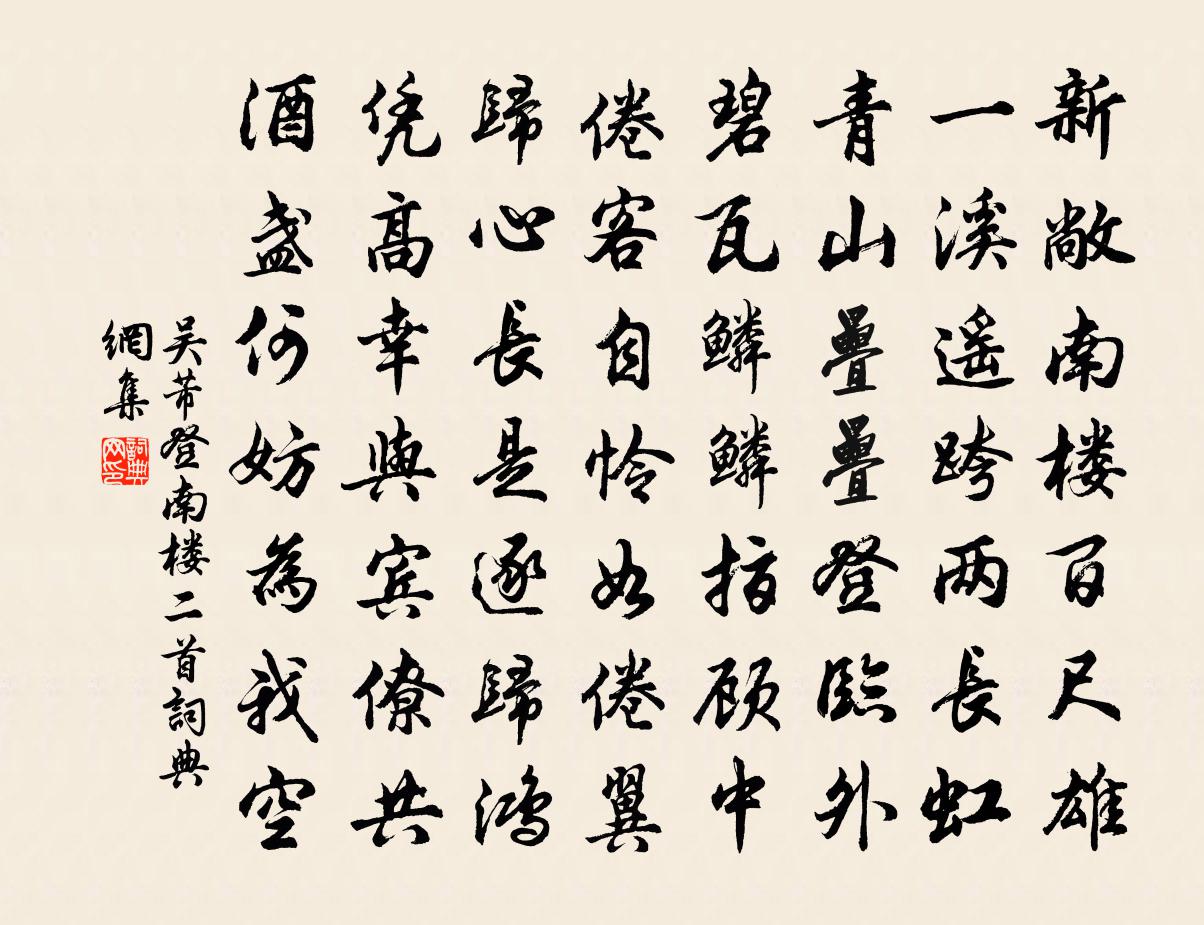 新敞南楼百尺雄
一溪遥跨两長虹
青山疊疊登臨外
碧瓦鳞鳞指顾中
倦客自怜如倦翼
歸心長是逐歸鸿
凭高幸與宾僚共
酒盏何妨為我空
吴芾登南楼二首詞典
網集
詞典
网印